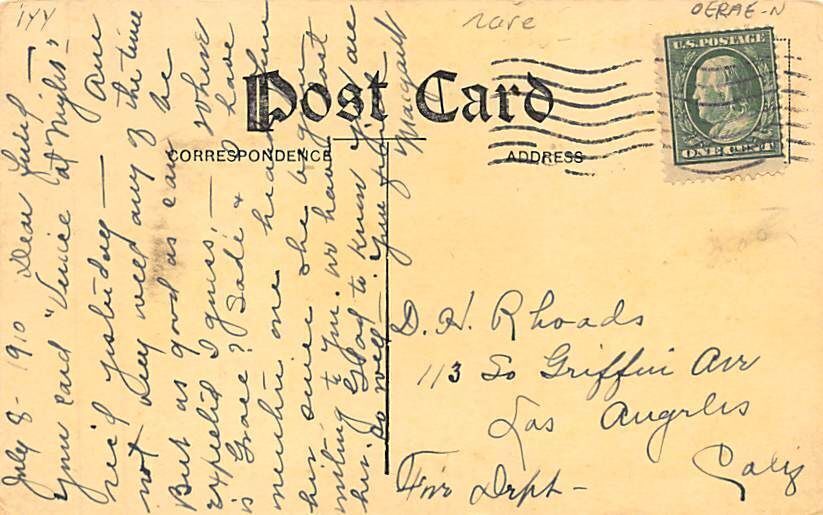 144
rare
OERAE-N
U.S. POSTAGE
ONE CENT
Post Card
CORRESPONDENCE
ADDRESS
July 8 - 1910 Dear friend —
Your card "Venice at Night"
rec'd yesterday — Am
not very well any of the time
But as good as can be
expected I guess. — Where
is Grace? Sade & I have
mention one head
her since she began
writing to you. We have lost
her. Glad to know you are
so well — Your friend
Margaret
D. H. Rhoads
113 So Griffin Ave
Los Angeles
Calif
Fire Dept —